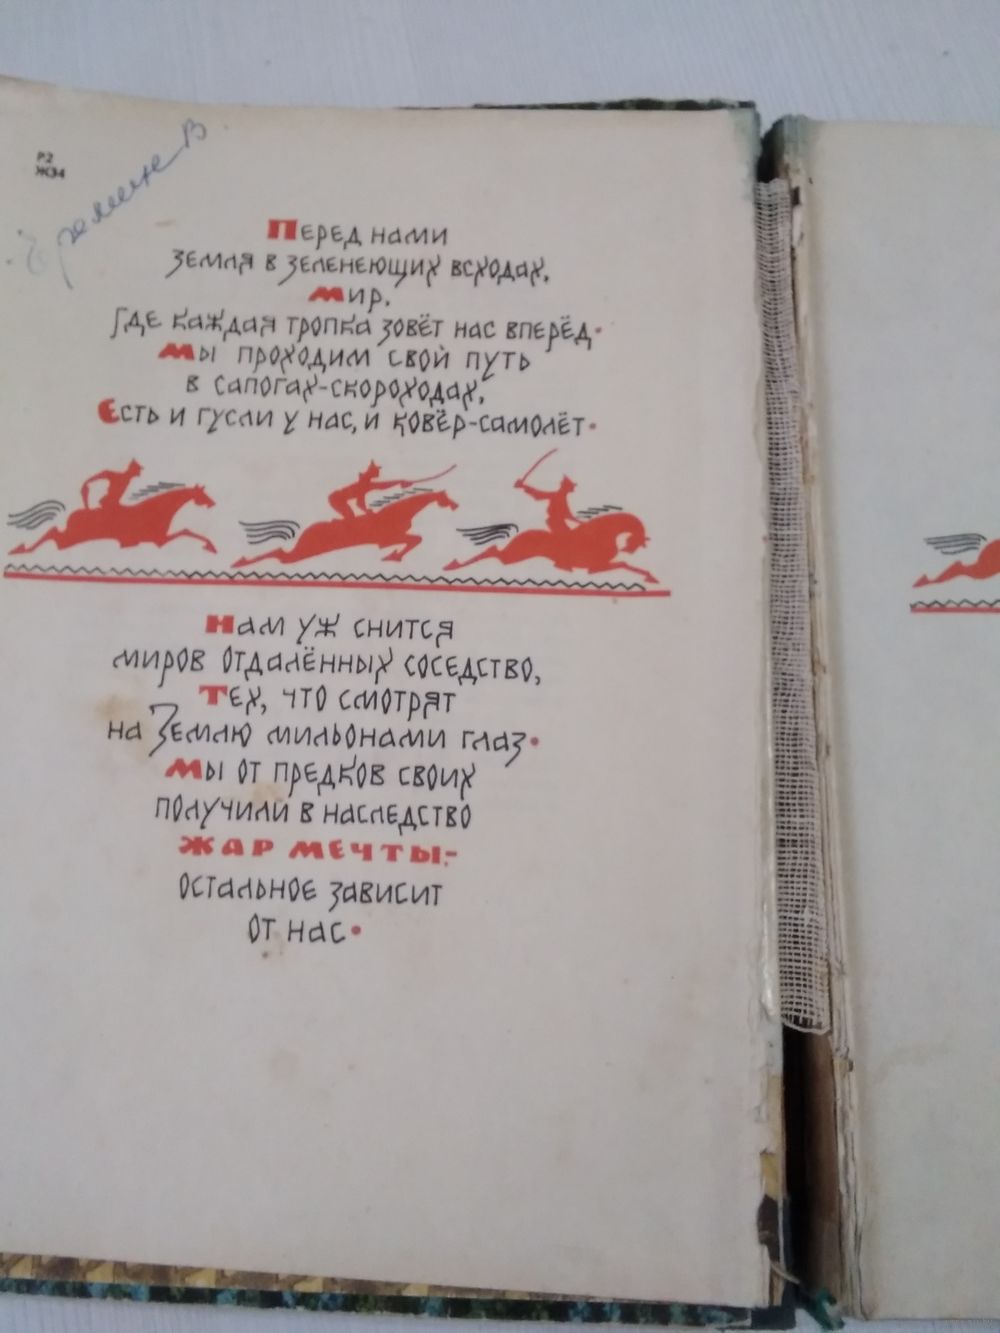 Р2
Ж34
Перед нами
земля в зеленеющих всходах,
Мир,
где каждая тропка зовёт нас вперёд.
Мы проходим свой путь
в сапогах-скороходах,
Есть и гусли у нас, и ковёр-самолёт.
Нам уж снится
миров отдалённых соседство,
Тех, что смотрят
на Землю мильонами глаз.
Мы от предков своих
получили в наследство
ЖАР МЕЧТЫ,-
остальное зависит
от нас.